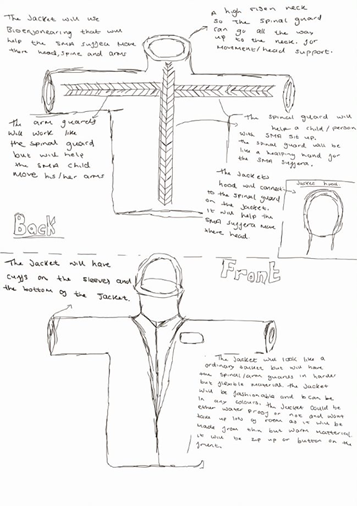 The Jacket will use
Bioengineering that will
help the SMA suffera move
there head, spine and arms
A high risen neck
so the spinal guard
can go all the way
up to the neck. for
movement/head support.
The arm guards
will work like
the spinal guard
but will help
the SMA child
move his/her arms
The spinal guard will
help a child/person
with SMA sit up.
The spinal guard will be
like a helping hand for
the SMA suffera.
The Jackets
hood will connect
to the spinal guard
on the jacket.
it will help the
SMA suffera move
there head
Jackets hood.
Back
Front
The Jacket will have
cuffs on the sleeves and
the bottom of the Jacket.
The Jacket will look like a
ordinary Jacket but will have
the spinal/arm guards in harder
but flexible material. the Jacket
will be fashionable and can be
in any colours. the Jacket could be
ether water proof or not and wont
take up lots of room as it will be
made from thin but warm matterial
it will be zip up or button on the
front.